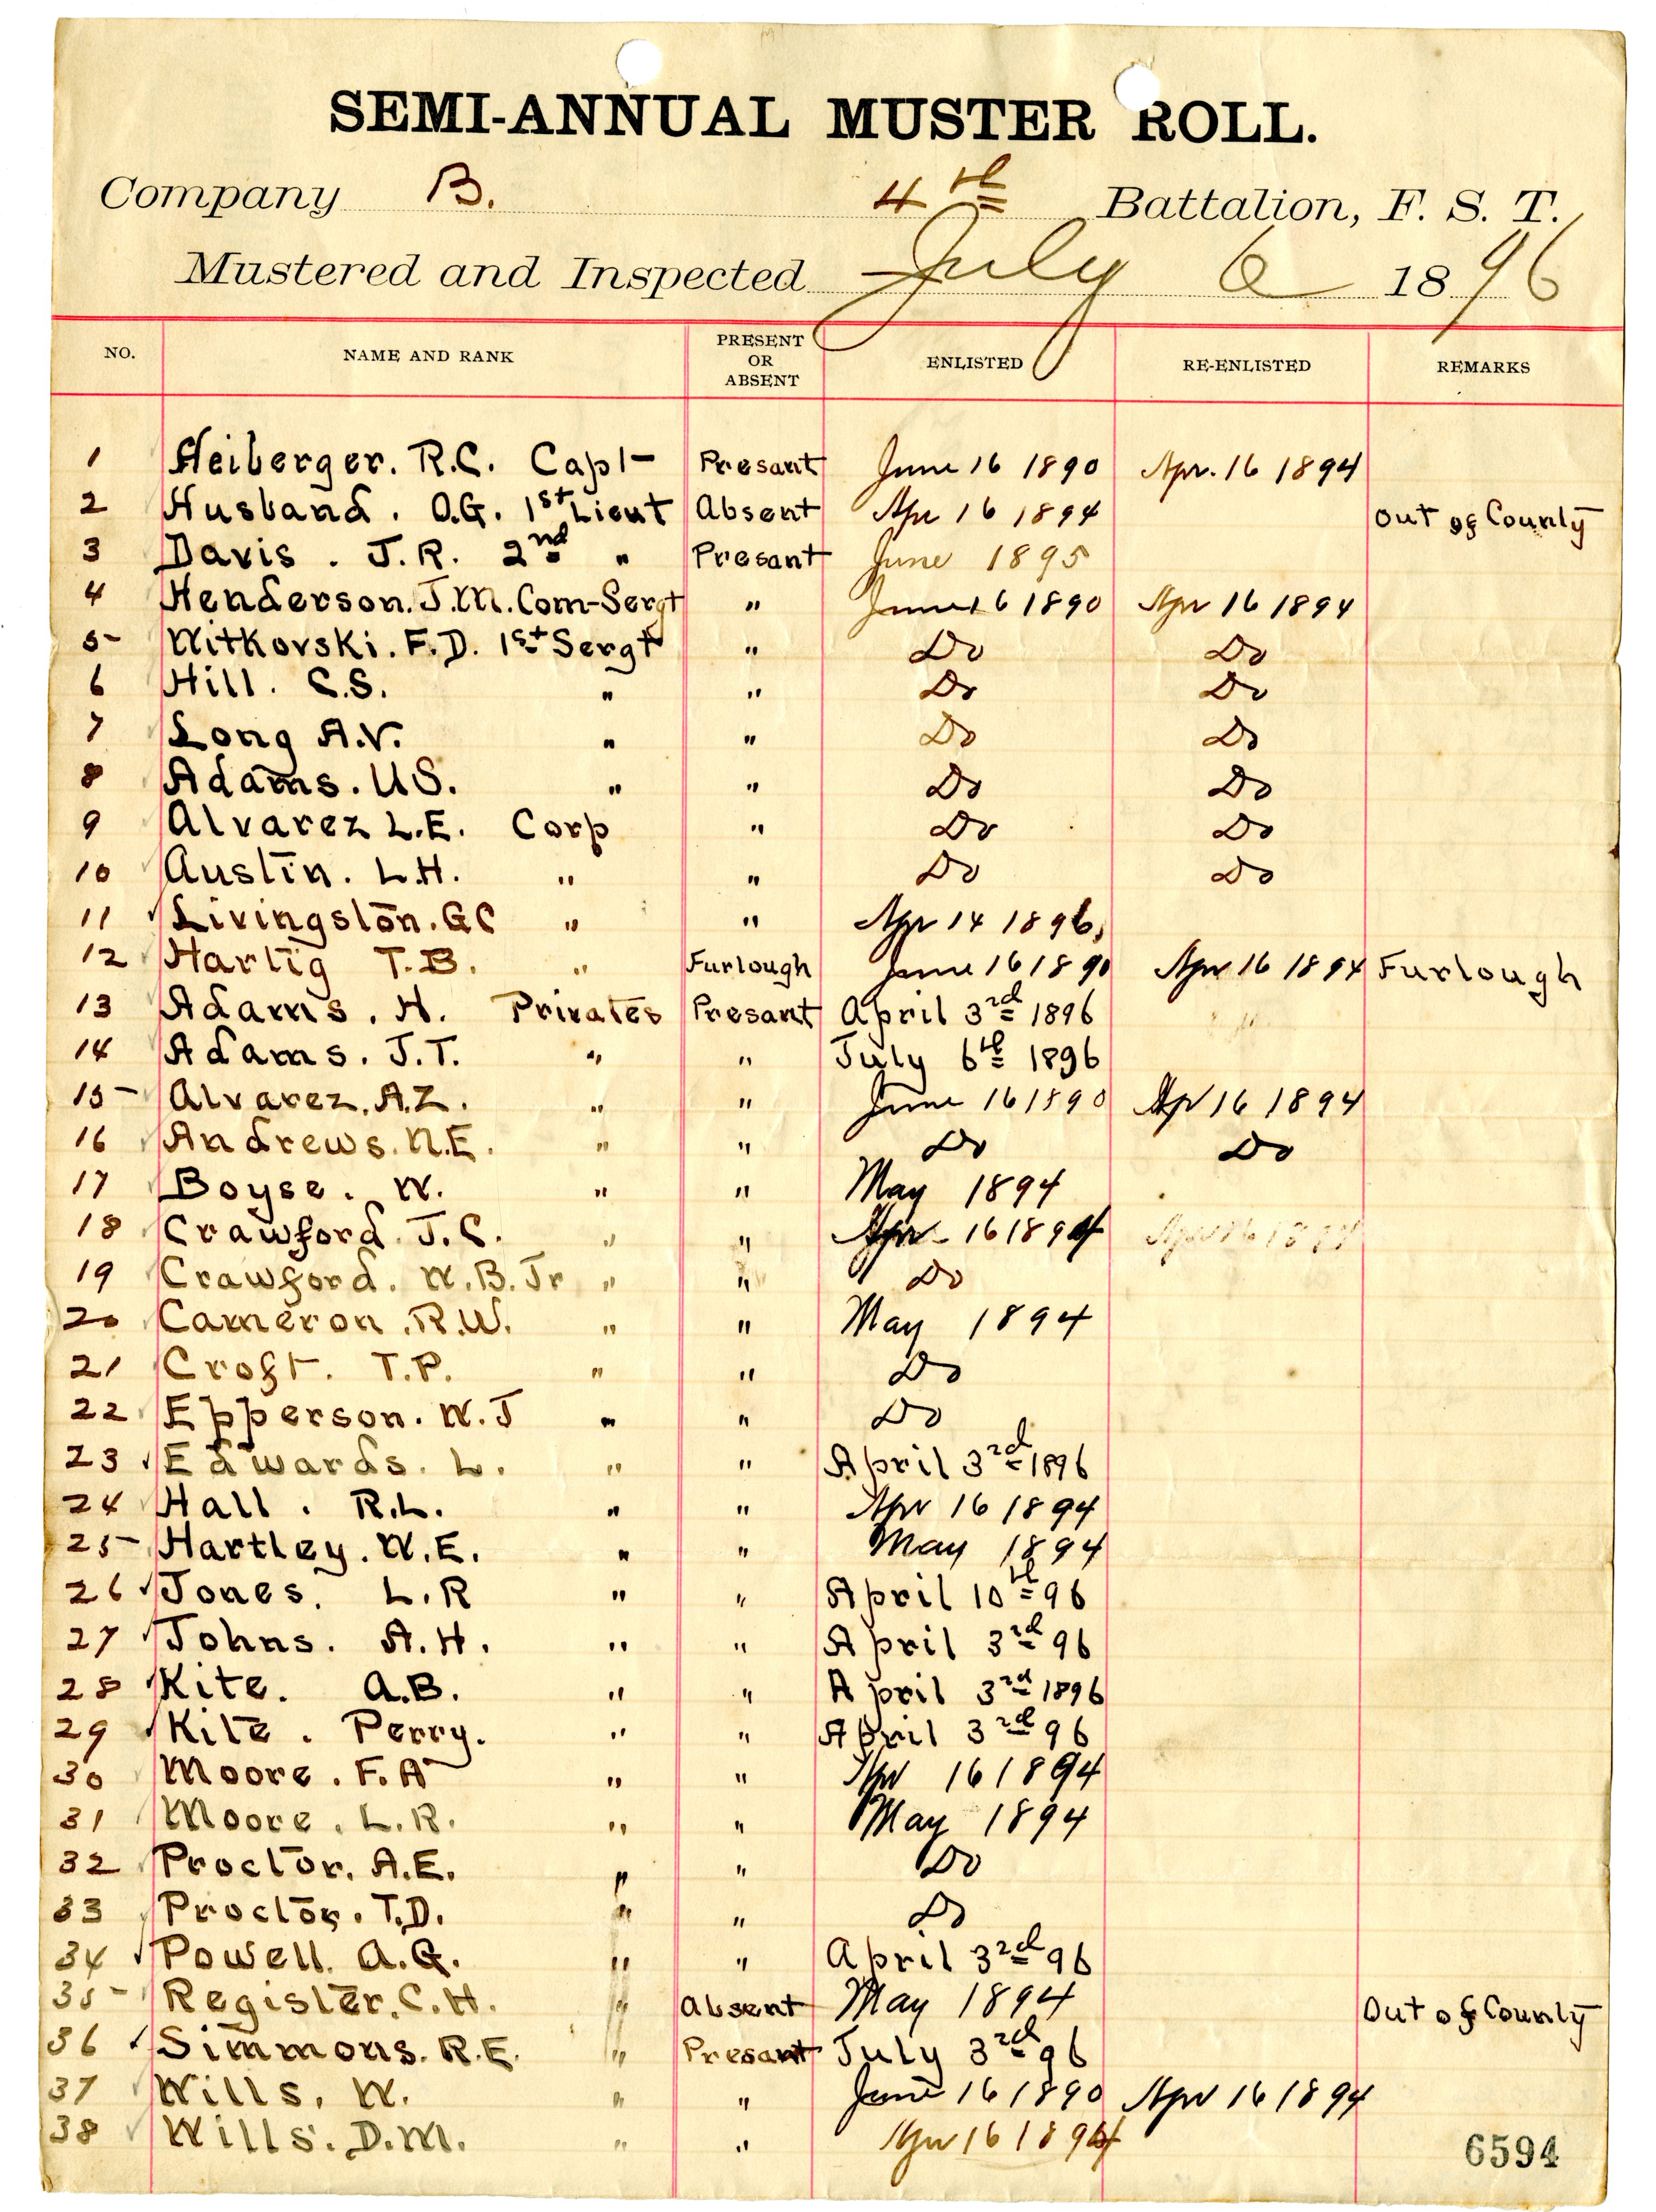 SEMI-ANNUAL MUSTER ROLL.
Company B. 4th Battalion, F. S. T.
Mustered and Inspected July 6 1896
NO. NAME AND RANK PRESENT OR ABSENT ENLISTED RE-ENLISTED REMARKS
1 Heiberger. R.C. Capt Presant June 16 1890 Apr. 16 1894
2 Husband. O.G. 1st Lieut Absent Apr 16 1894 Out of County
3 Davis. J.R. 2nd " Presant June 1895
4 Henderson. J.M. Com-Sergt " June 16 1890 Apr 16 1894
5 Witkovski. F.D. 1st Sergt " Do Do
6 Hill. C.S. " " Do Do
7 Long A.V. " " Do Do
8 Adams. U.S. " " Do Do
9 Alvarez L.E. Corp " Do Do
10 Austin. L.H. " " Do Do
11 Livingston. GC " " Apr 14 1896,
12 Hartig T.B. " Furlough June 16 1890 Apr 16 1894 Furlough
13 Adams. H. Privates Presant April 3rd 1896
14 Adams. J.T. " " July 6th 1896
15 Alvarez. A.Z. " " June 16 1890 Apr 16 1894
16 Andrews. N.E. " " Do Do
17 Boyse. W. " " May 1894
18 Crawford. J.C. " " Apr 16 1894
19 Crawford. W.B. Jr " " Do
20 Cameron. R.W. " " May 1894
21 Croft. T.P. " " Do
22 Epperson. W.J " " Do
23 Edwards. L. " " April 3rd 1896
24 Hall. R.L. " " Apr 16 1894
25 Hartley. W.E. " " May 1894
26 Jones. L.R " " April 10th 96
27 Johns. A.H. " " April 3rd 96
28 Kite. A.B. " " April 3rd 1896
29 Kite. Perry. " " April 3rd 96
30 Moore. F.A " " Apr 16 1894
31 Moore. L.R. " " May 1894
32 Proctor. A.E. " " Do
33 Proctor. T.D. " " Do
34 Powell. A.G. " " April 3rd 96
35 Register. C.H. " Absent May 1894 Out of County
36 Simmons. R.E. " Presant July 3rd 96
37 Wills. W. " " June 16 1890 Apr 16 1894
38 Wills. D.M. " " Apr 16 1894
6594